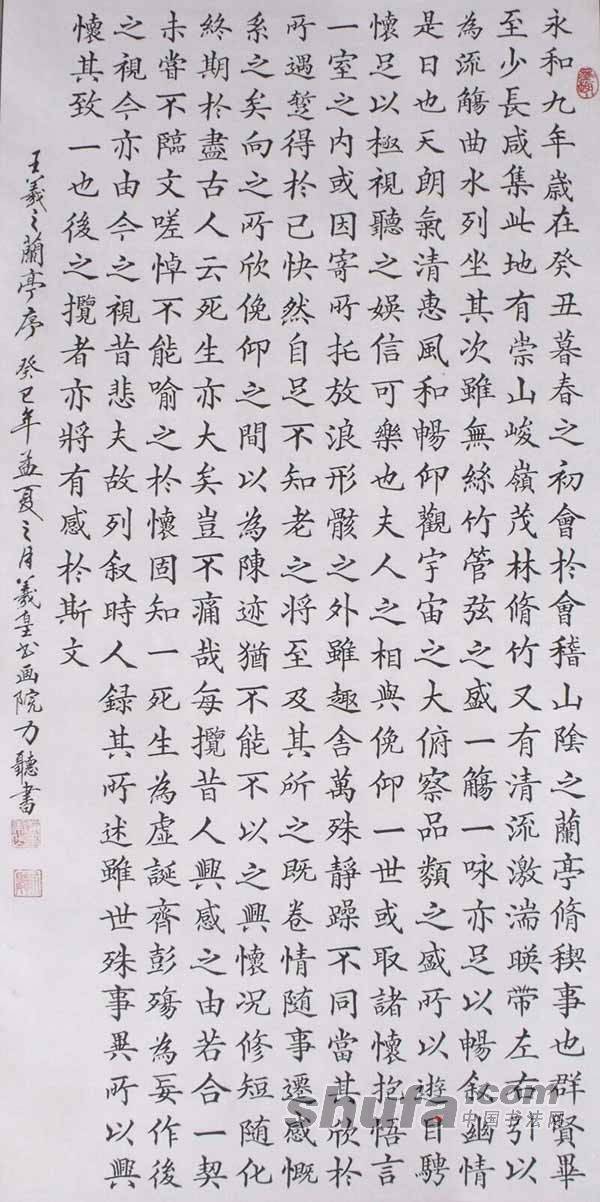 永和九年歲在癸丑暮春之初會於會稽山陰之蘭亭脩稧事也群賢畢
至少長咸集此地有崇山峻嶺茂林脩竹又有清流激湍暎帶左右引以
為流觴曲水列坐其次雖無絲竹管弦之盛一觴一咏亦足以暢叙幽情
是日也天朗氣清惠風和暢仰觀宇宙之大俯察品類之盛所以遊目騁
懷足以極視聽之娛信可樂也夫人之相與俛仰一世或取諸懷抱悟言
一室之内或因寄所托放浪形骸之外雖趣舍萬殊靜躁不同當其欣於
所遇蹔得於己快然自足不知老之將至及其所之既卷情隨事遷感慨
系之矣向之所欣俛仰之間以為陳迹猶不能不以之興懷況修短隨化
終期於盡古人云死生亦大矣豈不痛哉每攬昔人興感之由若合一契
未嘗不臨文嗟悼不能喻之於懷固知一死生為虛誕齊彭殤為妄作後
之視今亦由今之視昔悲夫故列叙時人録其所述雖世殊事異所以興
懷其致一也後之攬者亦將有感於斯文
王羲之蘭亭序 癸巳年孟夏之月羲皇书画院力聽書
shufa.com
中国书法网